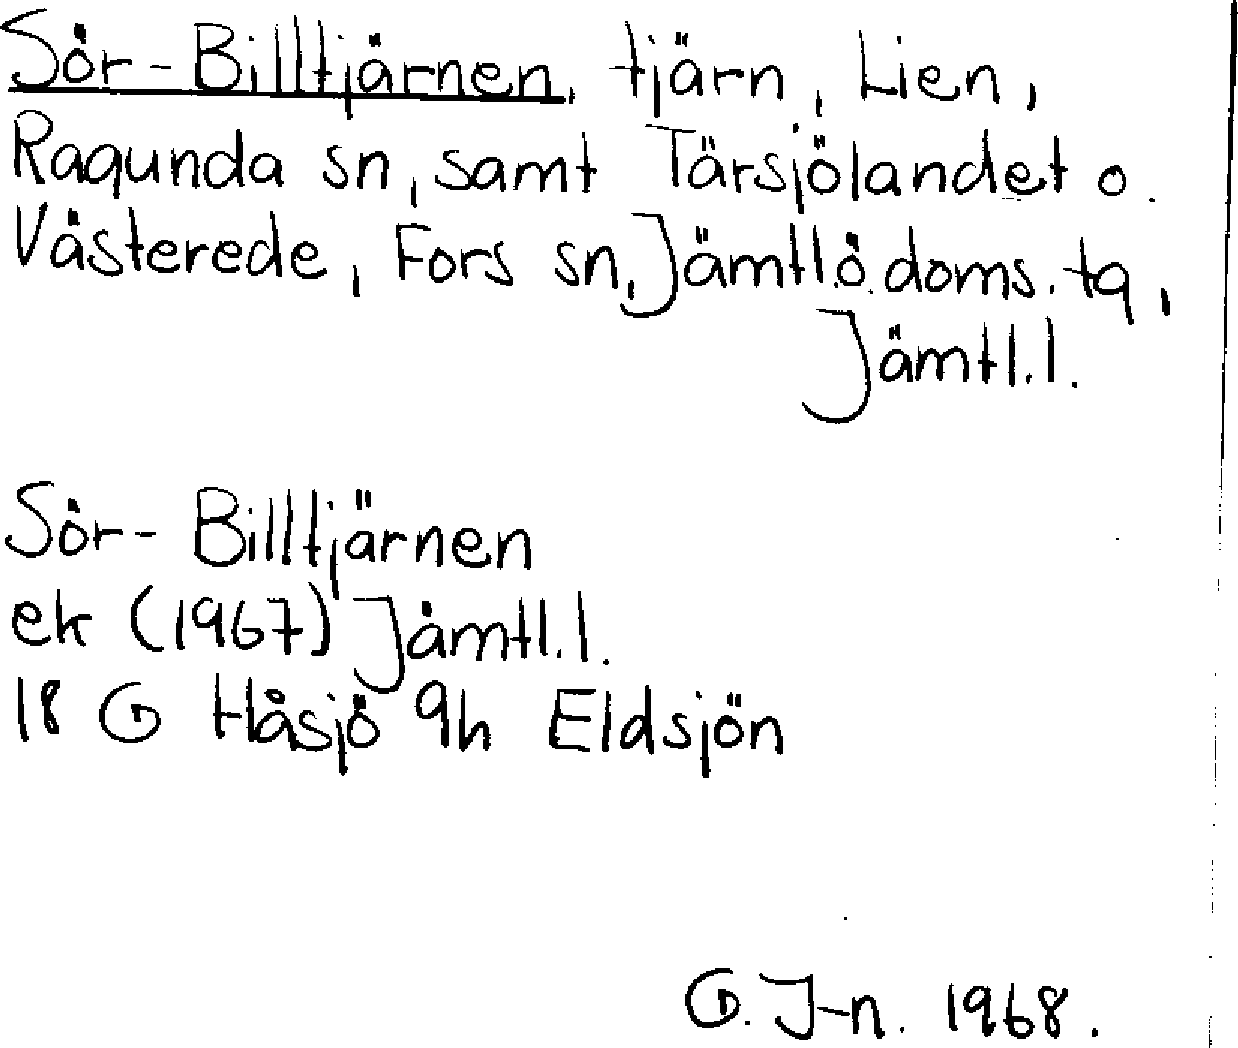 Sör-Billtjärnen, tjärn, Lien,
Ragunda sn, samt Tärsjölandet o.
Västerede, Fors sn, Jämtl.ö.doms.tg,
Jämtl.l.
Sör-Billtjärnen
ek (1967) Jämtl.l.
18 G Håsjö 9h Eldsjön
G. J-n. 1968.